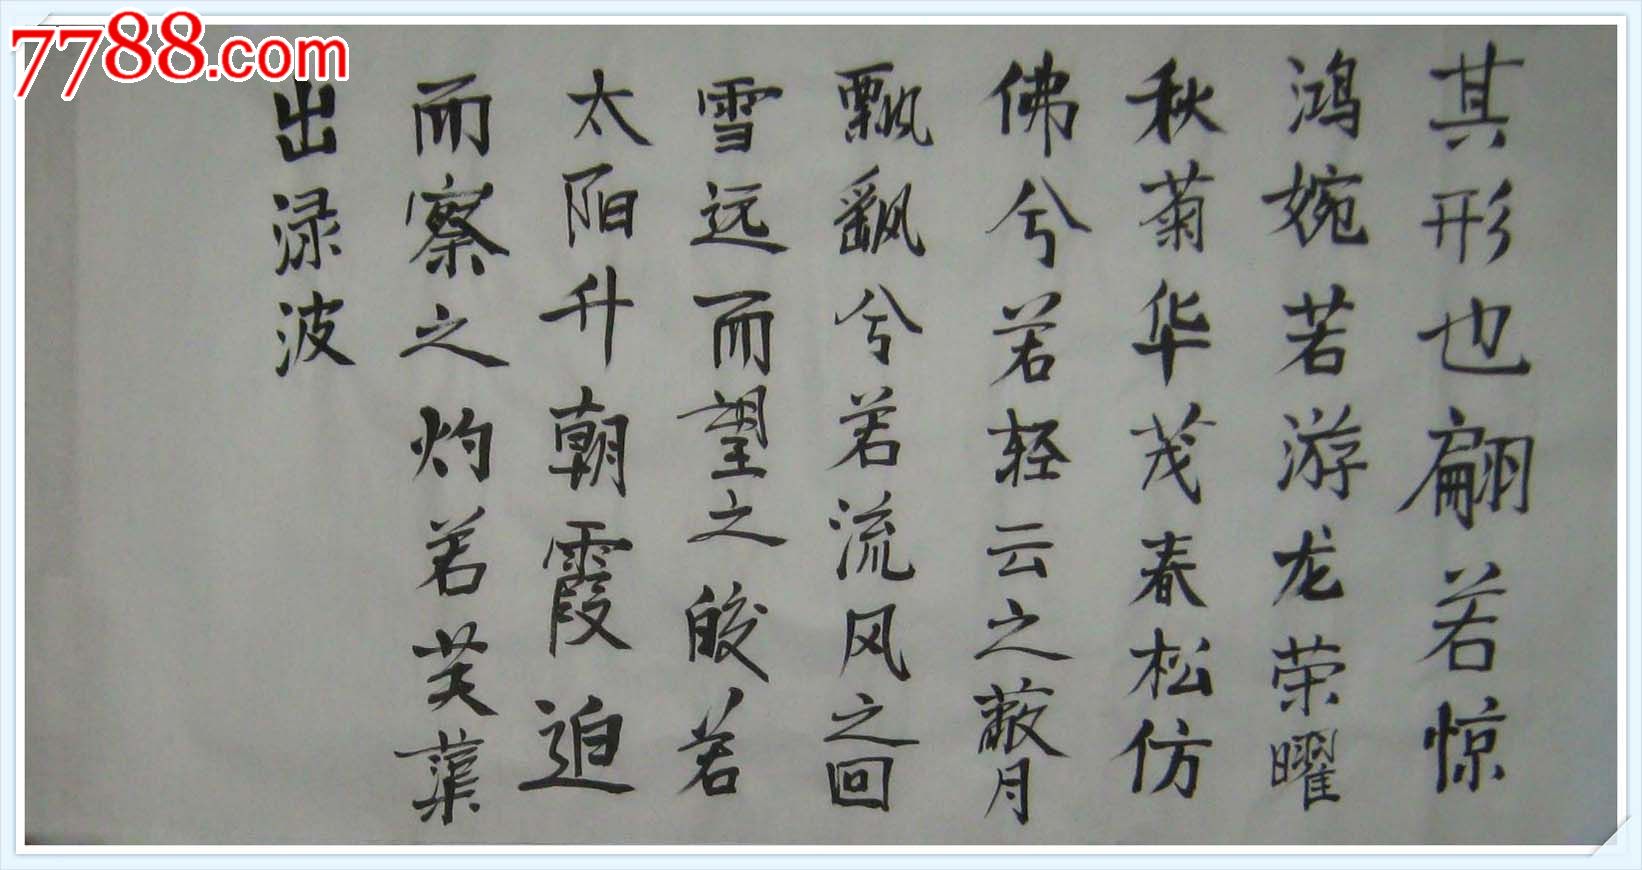 7788.com
其形也翩若惊
鸿婉若游龙荣曜
秋菊华茂春松仿
佛兮若轻云之蔽月
飘飖兮若流风之回
雪远而望之皎若
太阳升朝霞迫
而察之灼若芙蕖
出渌波